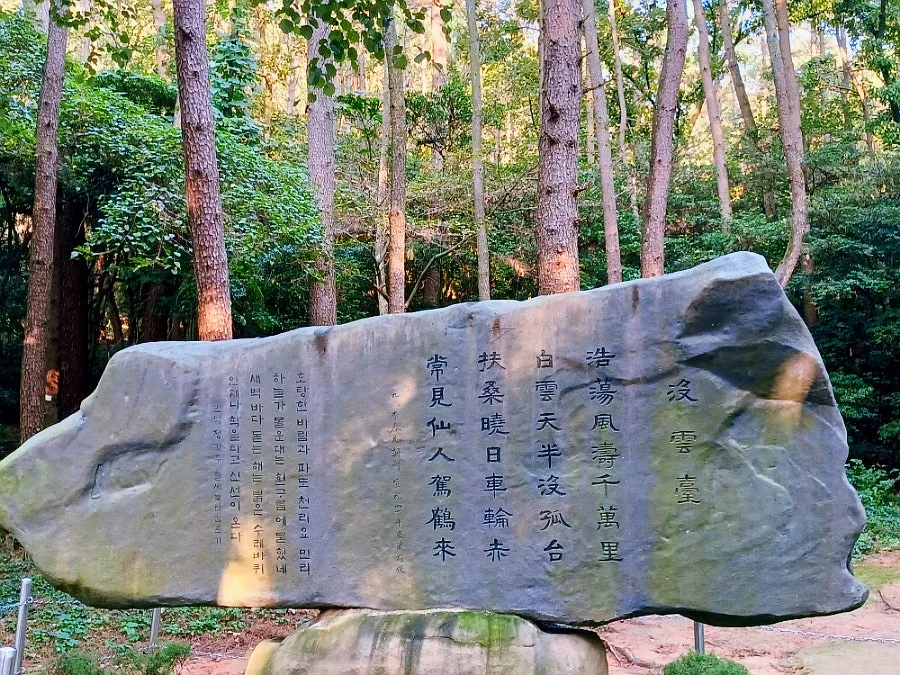 沒雲臺
浩蕩風濤千萬里
白雲天半沒孤台
扶桑曉日車輪赤
常見仙人駕鶴來
호탕한 바람과 파도 천리요 만리
하늘가 몰운대는 흰구름에 묻혔네
새벽바다 돋는 해는 붉은 수레바퀴
언제나 학을 타고 신선이 온다